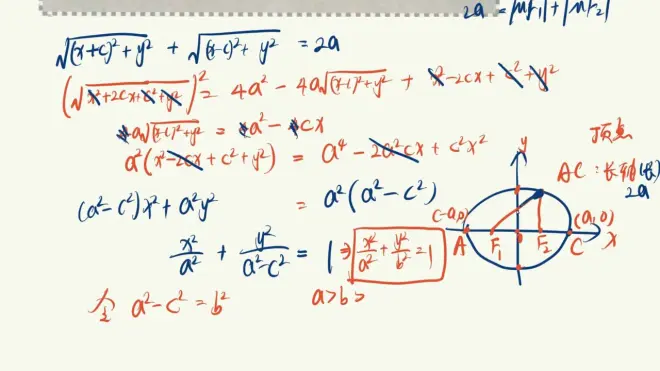 2a = |MF₁| + |MF₂|
√((x+c)²+y²) + √((x-c)²+y²) = 2a
(√(x²+2cx+c²+y²))² = 4a² - 4a√((x-c)²+y²) + x²-2cx+c²+y²
4a√((x-c)²+y²) = 4a² - 4cx
a²(x²-2cx+c²+y²) = a⁴ - 2a²cx + c²x²
(a²-c²)x² + a²y² = a²(a²-c²)
x²/a² + y²/(a²-c²) = 1 ⇒ x²/a² + y²/b² = 1
令 a²-c² = b²
a>b>
顶点
AC:长轴(长)
2a
y
(-a,0)
(a,0)
A
F₁
F₂
C
x